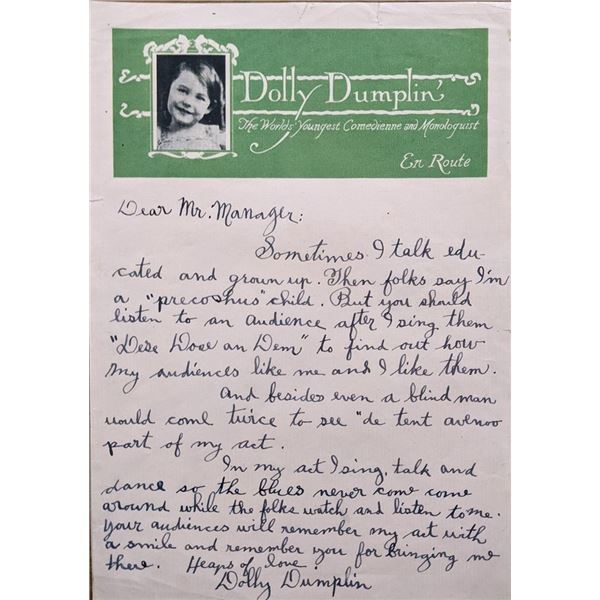 Dolly Dumplin'
The Worlds Youngest Comedienne and Monologuist
En Route
Dear Mr. Manager:
Sometimes I talk edu-
cated and grown up. Then folks say I'm
a "precoshus" child. But you should
listen to an audience after I sing them
"Dese Dose an Dem" to find out how
my audiences like me and I like them.
And besides even a blind man
would come twice to see "de tent avenoo
part of my act.
In my act I sing, talk and
dance so the blues never come come
around while the folks watch and listen to me.
Your audiences will remember my act with
a smile and remember you for bringing me
there. Heaps of love.
Dolly Dumplin